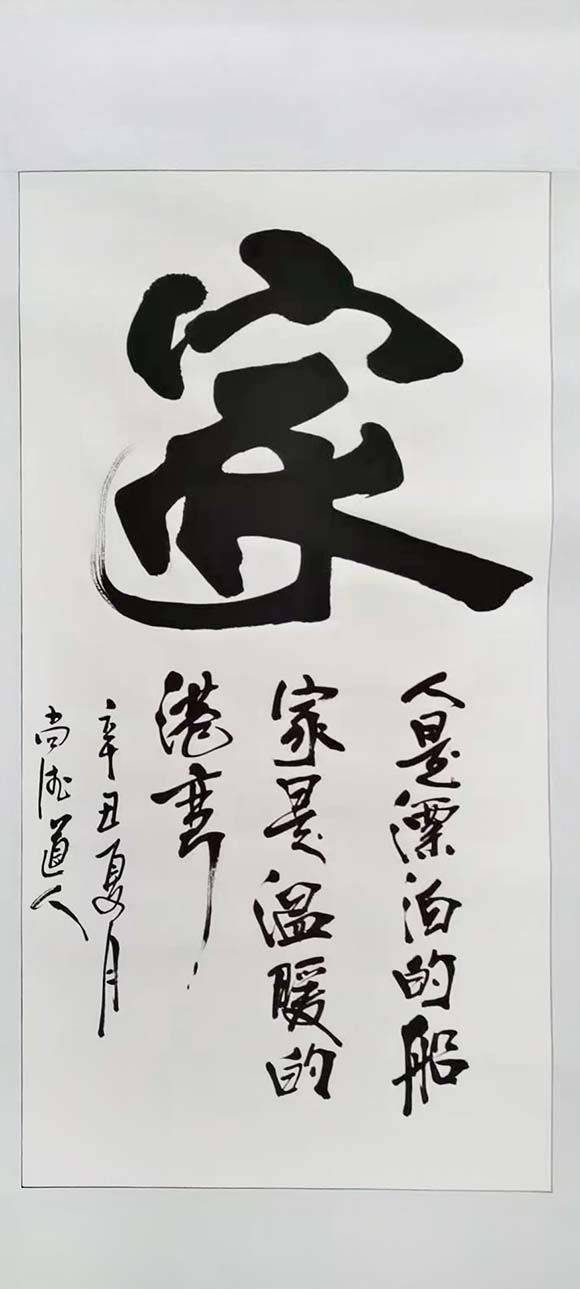 家
人是漂泊的船
家是温暖的
港湾
辛丑夏月
尚德道人